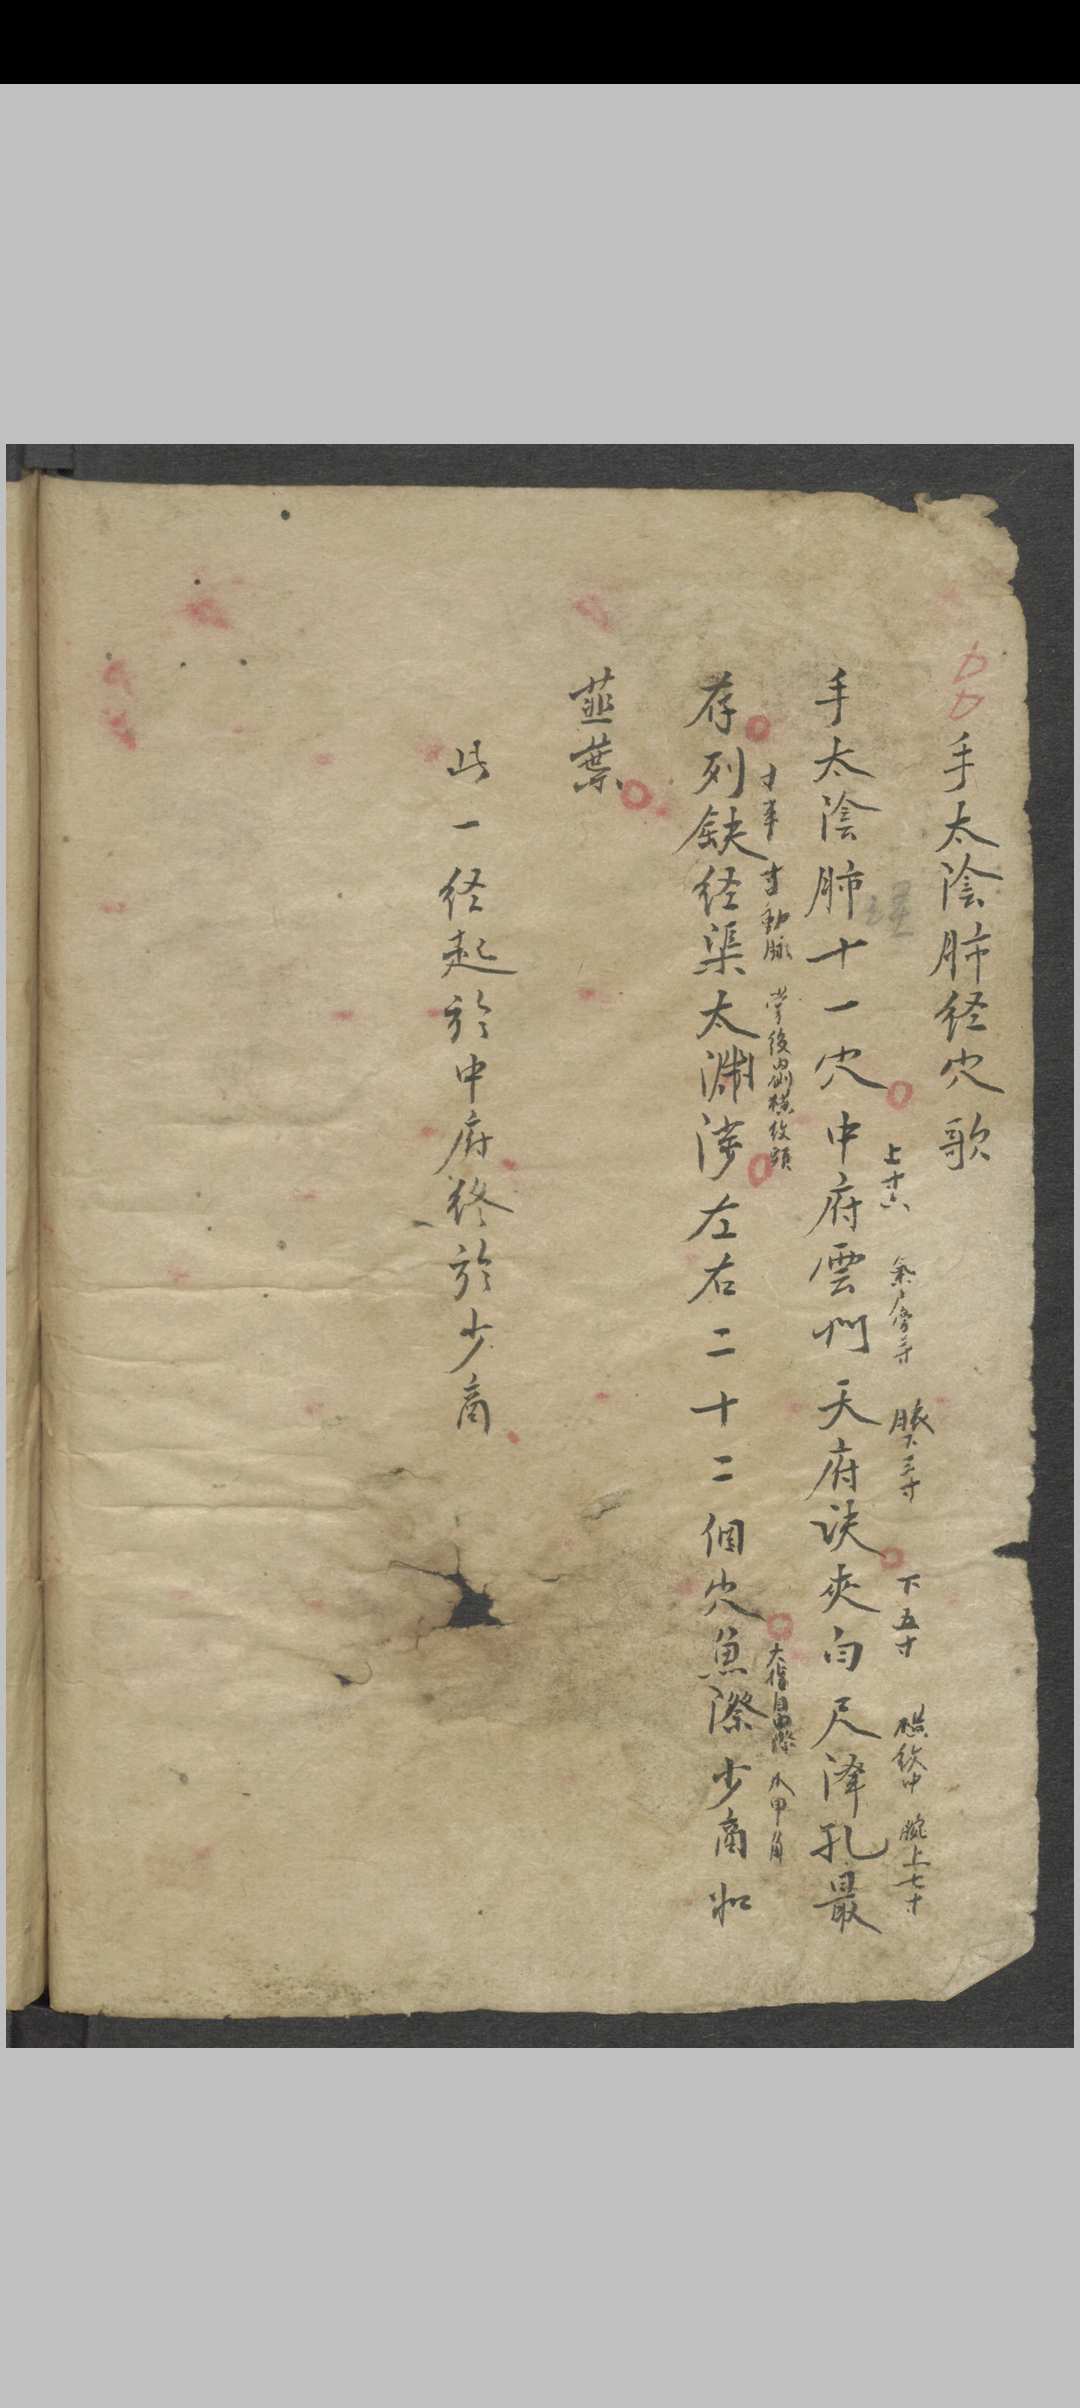 手太陰肺経穴歌
手太陰肺十一穴中府雲門天府訣夾白尺澤孔最
上六
旁三寸
腋下三寸
下五寸
横紋中
腕上七寸
存列缺経渠太渊涉左右二十二個穴魚際少商如
寸半
寸動脉
掌後横紋頭
大指
爪甲角
韮葉
此一経起於中府終於少商